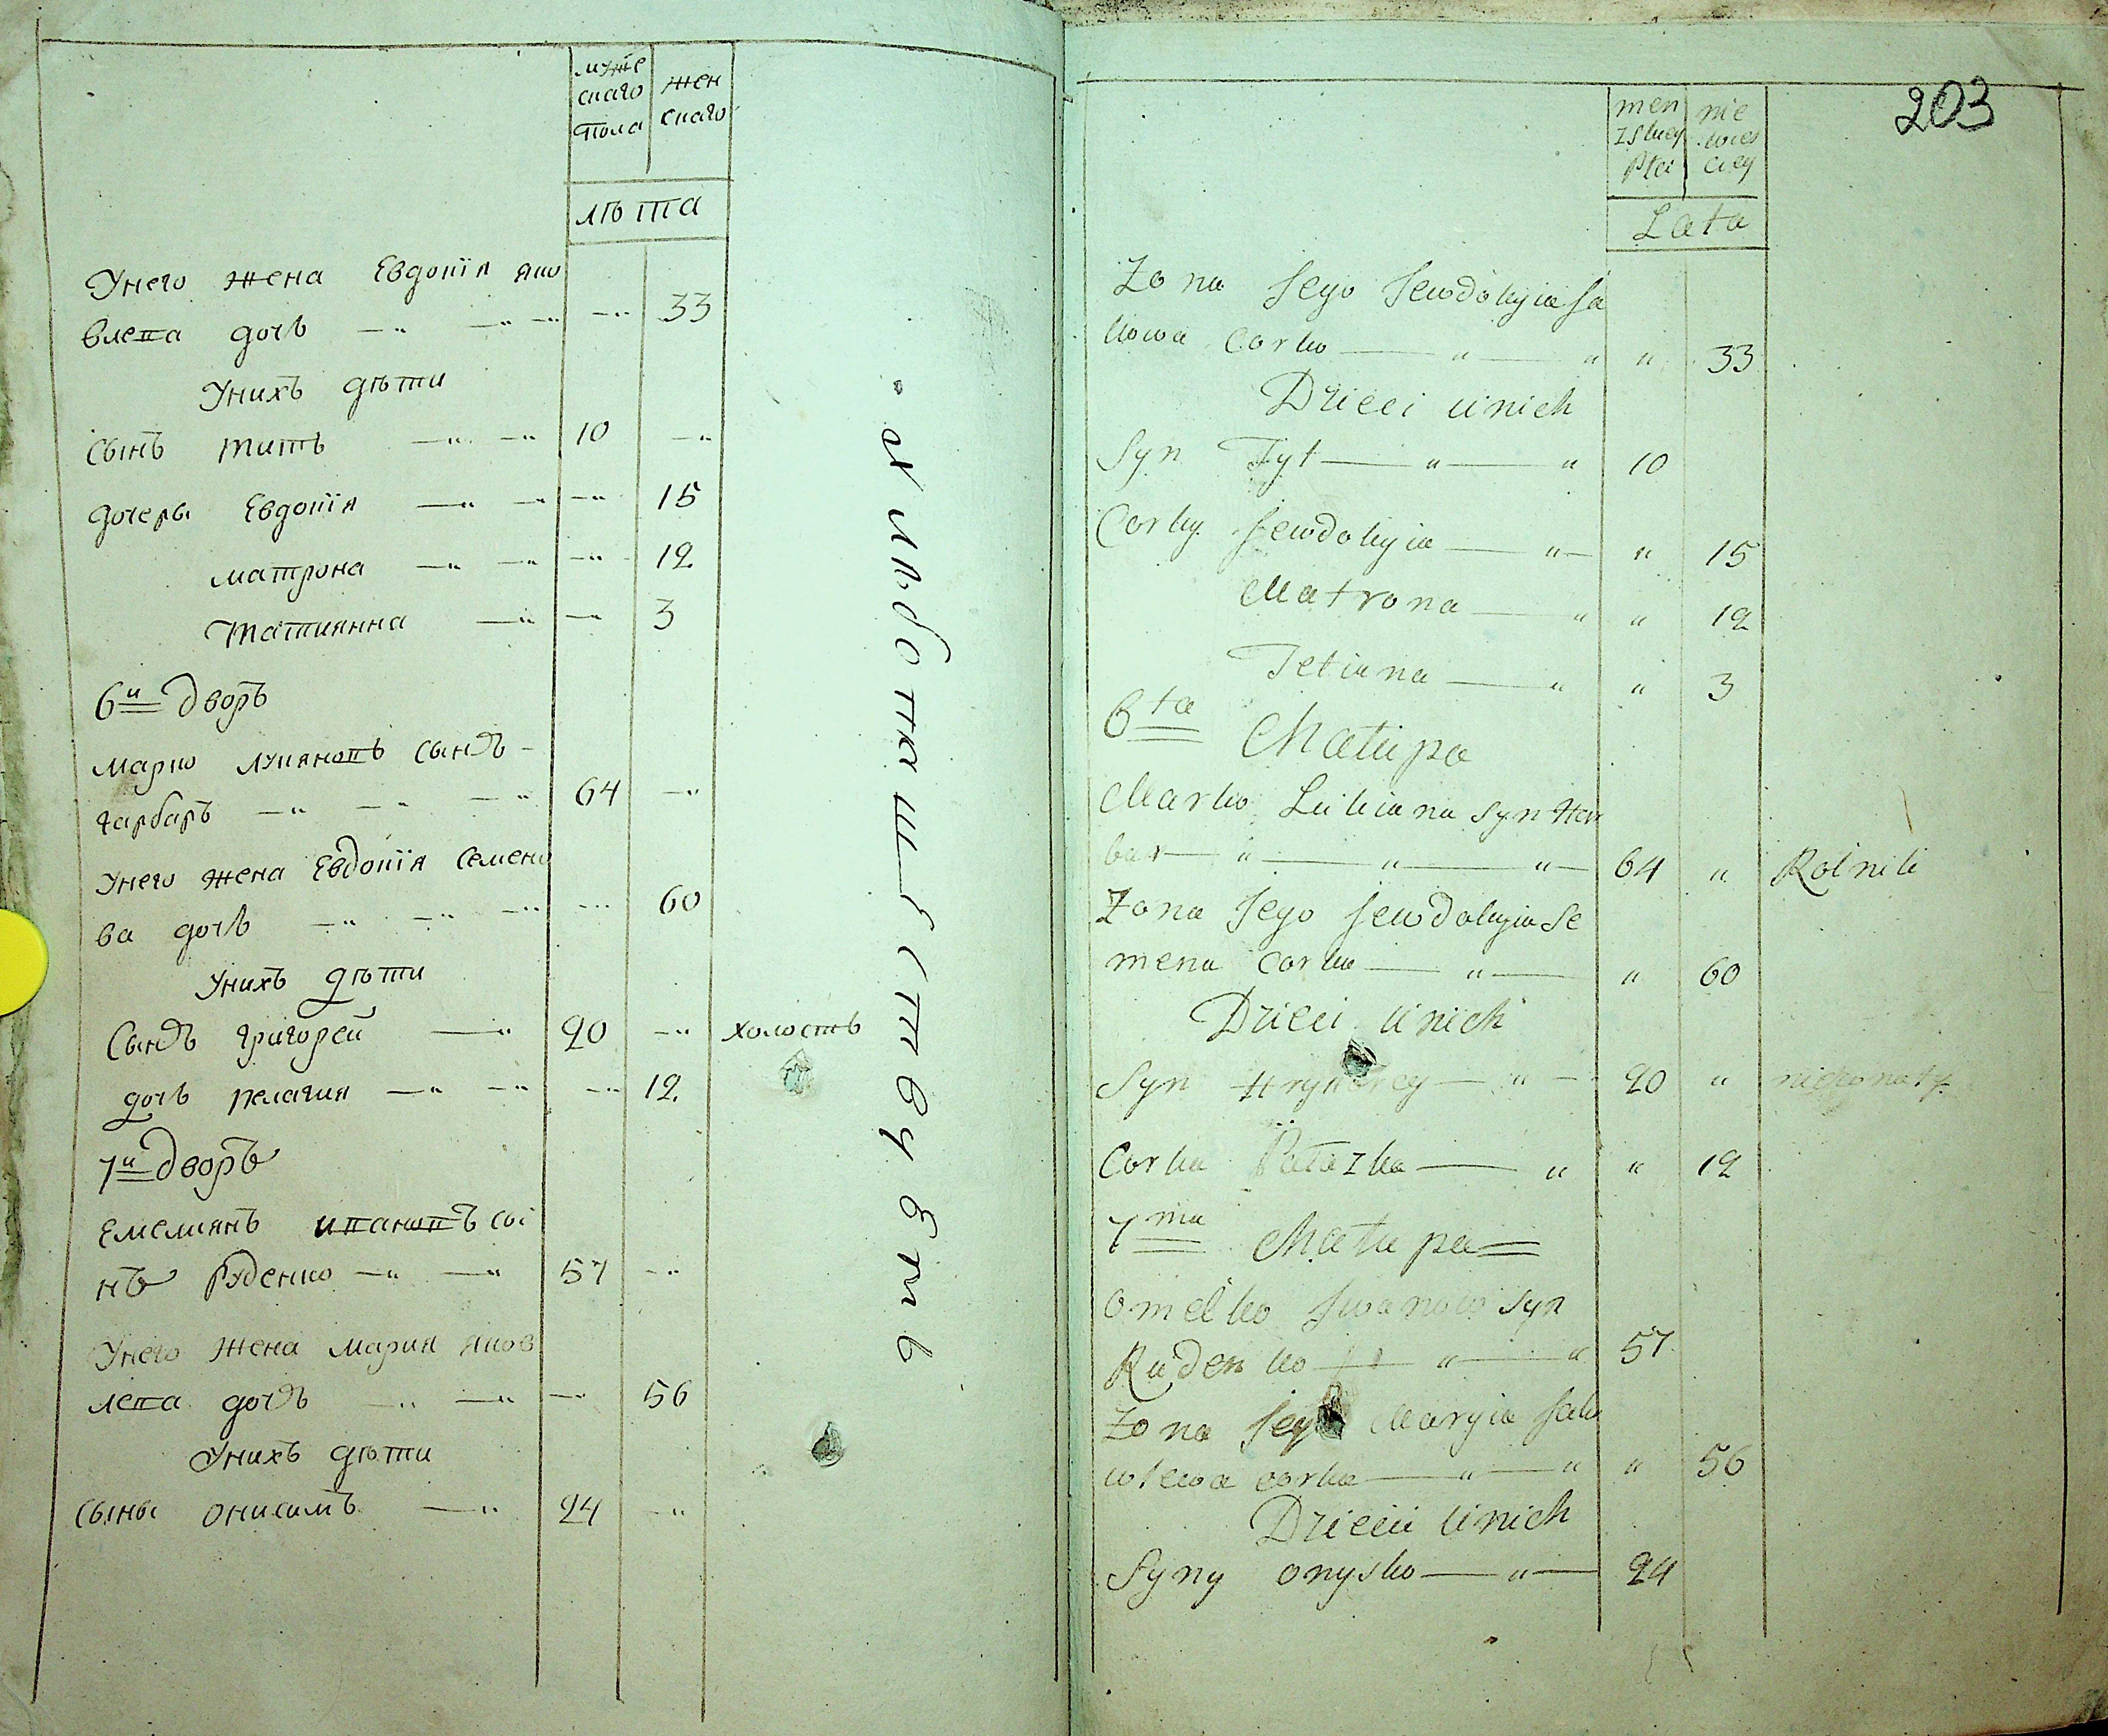 муже
скаго
пола
жен
скаго
лѣта
Унего жена Евдокія яко
влева дочь —〃 —〃 —〃 —〃 33
Унихъ дѣти
Сынъ титъ —〃 —〃 10 —〃
дочеры Евдокія —〃 —〃 —〃 15
матрона —〃 —〃 —〃 12
Татиянна —〃 —〃 3
6й дворъ
марко лукяновъ сынъ —
гарбаръ —〃 —〃 —〃 64 —〃
Унего жена Евдокія Семено
ва дочь —〃 —〃 —〃 —〃 60
Унихъ дѣти
Сынъ григорей —〃 20 —〃 холостъ
дочь пелагия —〃 —〃 —〃 12
7й дворъ
Емелиянъ ивановъ сы
нъ руденко —〃 —〃 57 —〃
Унего жена мария яков
лева дочъ —〃 —〃 —〃 56
Унихъ дѣти
Сыны онисимъ —〃 24 —〃
203
men
zskey
Płci
nie
wies
ciey
Lata
Zona Jego Jewdokyia Ja
kowa Corka — 〃 — 〃 〃 33
Dzieci u nich
Syn Tyt — 〃 — 〃 10
Corky Jewdokyia — 〃 — 〃 15
Matrona — 〃 〃 12
Tetiana — 〃 〃 3
6ta Chatupa
Marko Lukiana syn Har
bar — 〃 — 〃 — 〃 — 64 〃 Rolnik
Zona Jego Jewdokyia Se
mena Corka — 〃 — 〃 60
Dzieci u nich
Syn Hryhorey — 〃 — 20 〃 nieżonaty
Corka Pałazka — 〃 〃 12
7ma Chatupa
Omelko Jwanow Syn
Rudenko — 〃 — 〃 57
Zona Jego Maryia Jako
wlewa corka — 〃 — 〃 〃 56
Dziecii u nich
Syny onysko — 〃 — 24